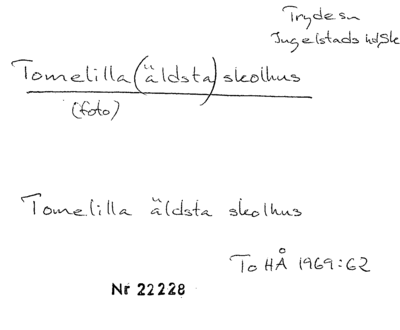 Tryde sn
Ingelstads hd, Sk
Tomelilla (äldsta) skolhus
(foto)
Tomelilla äldsta skolhus
To HÅ 1969:62
Nr 22228